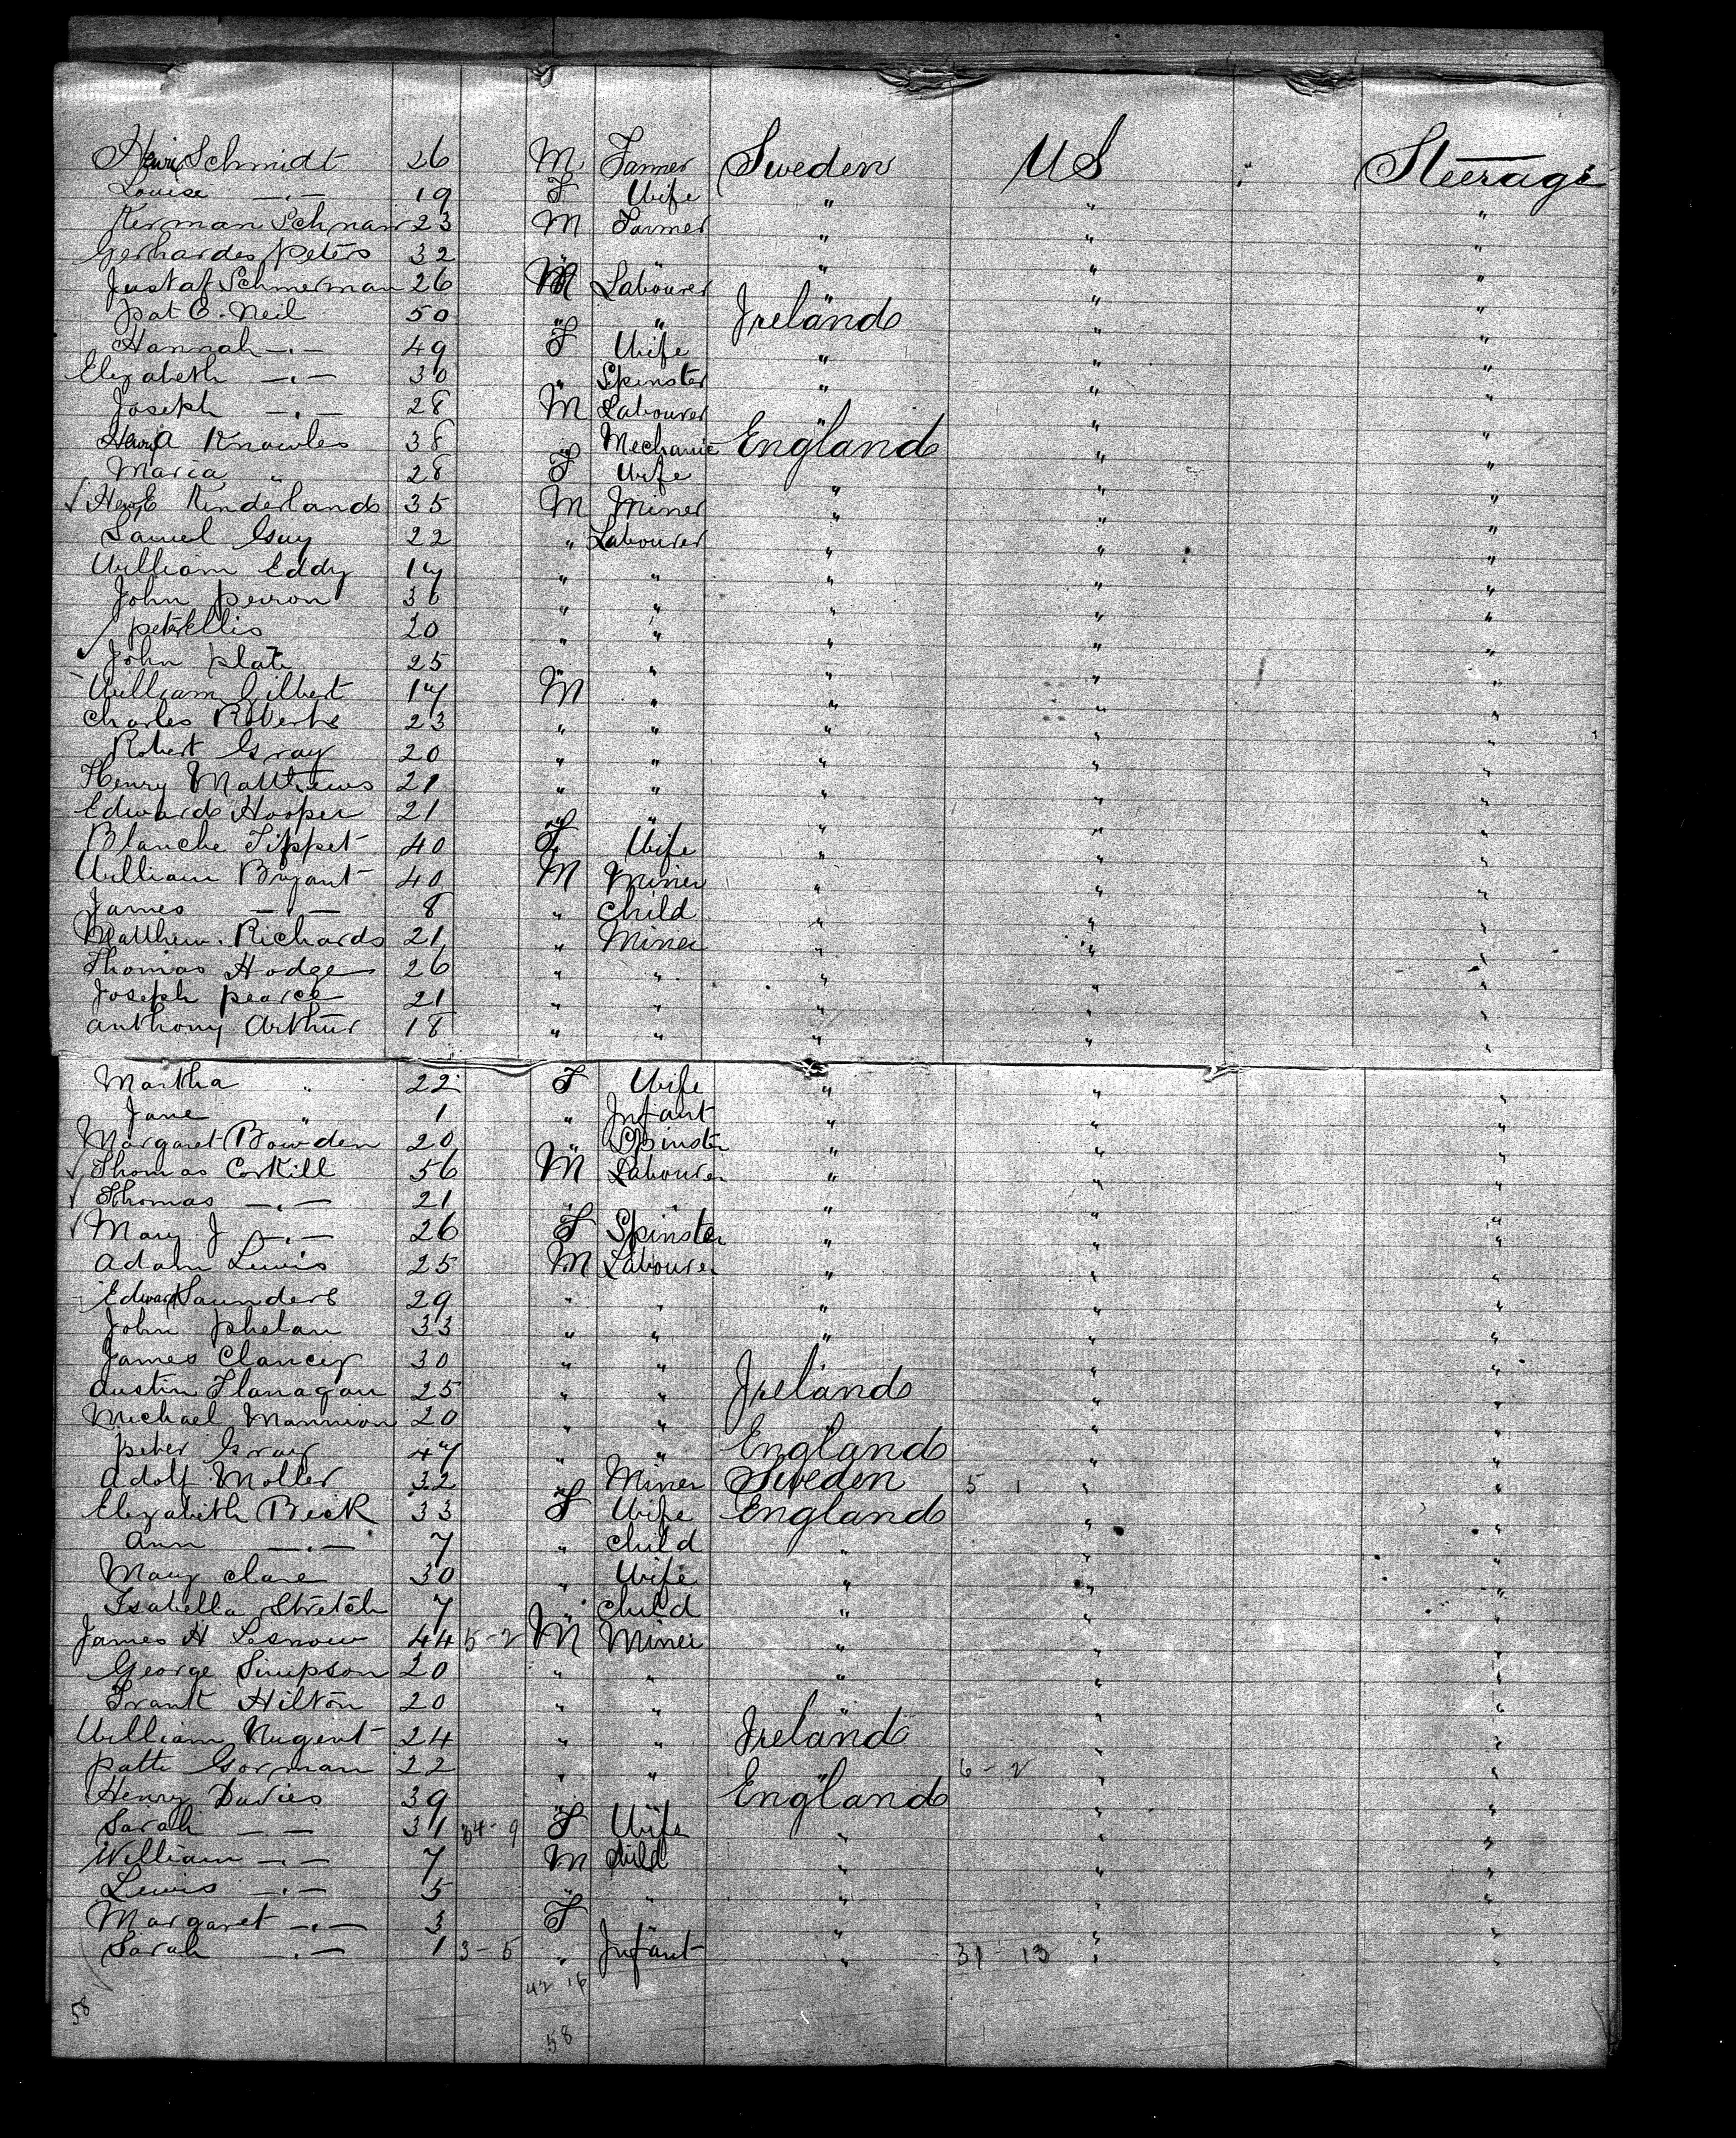 Henri Schmidt 26 M Farmer Sweden US " Steerage
Louise —"— 19 F Wife " " "
Herman Schnar 23 M Farmer " " "
Gerhardes Peters 32 " " " " "
Gustaf Schmerman 26 M Labourer " " "
Pat O. Neil 50 " " Ireland " "
Hannah —"— 49 F Wife " " "
Elizabeth —"— 30 " Spinster " " "
Joseph —"— 28 M Labourer " " "
Henry A Knowles 38 " Mechanic England " "
Maria " 28 F Wife " " "
Henry E Kinderland 35 M Miner " " "
Samuel Guy 22 " Labourer " " "
William Eddy 17 " " " " "
John 36 " " " " "
Peter Ellis 20 " " " " "
John Platt 25 " " " " "
William Gilbert 17 M " " " "
Charles Roberts 23 " " " " "
Robert Gray 20 " " " " "
Henry Matthews 21 " " " " "
Edward Hooper 21 " " " " "
Blanche Tippet 40 F Wife " " "
William Bryant 40 M Miner " " "
James —"— 8 " Child " " "
Matthew Richards 21 " Miner " " "
Thomas Hodge 26 " " " " "
Joseph Pearce 21 " " " " "
Anthony Arthur 18 " " " " "
Martha " 22 F Wife " " "
Jane " 1 " Infant " " "
Margaret Bowden 20 " Spinster " " "
Thomas Corkill 56 M Labourer " " "
Thomas —"— 21 " " " " "
Mary J —"— 26 F Spinster " " "
Adam Lewis 25 M Labourer " " "
Edward Saunders 29 " " " " "
John Phelan 33 " " " " "
James Clancey 30 " " " " "
Austin Flanagan 25 " " Ireland " "
Michael Mannion 20 " " " " "
Peter Gray 47 " " England " "
Adolf Moller 32 " Miner Sweden 5 1 " "
Elizabeth Beck 33 F Wife England " "
Ann —"— 7 " Child " " "
Mary Clare 30 " Wife " " "
Isabella Stretch 7 " Child " " "
James H Lesnow 44 5-2 M Miner " " "
George Simpson 20 " " " " "
Frank Hilton 20 " " " " "
William Nugent 24 " " Ireland " "
Patk Gorman 22 " " " 6-2 " "
Henry Davies 39 " " England " "
Sarah —"— 31 34-9 F Wife " " "
William —"— 7 M Child " " "
Lewis —"— 5 " " " " "
Margaret —"— 3 F " " "
Sarah —"— 1 3-5 " Infant " 31-13 " "
42 16
58
58